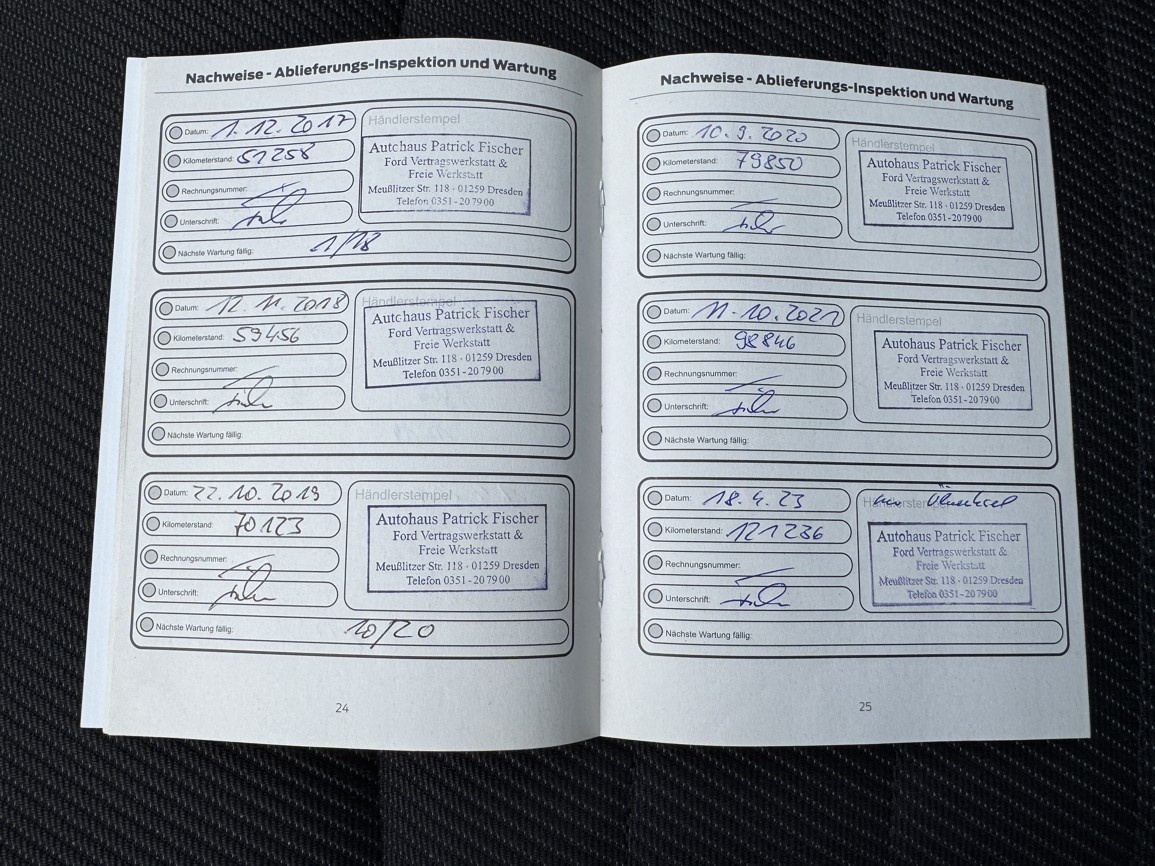 Nachweise - Ablieferungs-Inspektion und Wartung
Datum: 1.12.2017
Händlerstempel
Kilometerstand: 51258
Autohaus Patrick Fischer
Ford Vertragswerkstatt &
Freie Werkstatt
Meußlitzer Str. 118 · 01259 Dresden
Telefon 0351 - 20 79 00
Rechnungsnummer:
Unterschrift:
Nächste Wartung fällig: 1/18
Datum: 12.11.2018
Händlerstempel
Kilometerstand: 59456
Autohaus Patrick Fischer
Ford Vertragswerkstatt &
Freie Werkstatt
Meußlitzer Str. 118 · 01259 Dresden
Telefon 0351 - 20 79 00
Rechnungsnummer:
Unterschrift:
Nächste Wartung fällig:
Datum: 22.10.2019
Händlerstempel
Kilometerstand: 70123
Autohaus Patrick Fischer
Ford Vertragswerkstatt &
Freie Werkstatt
Meußlitzer Str. 118 · 01259 Dresden
Telefon 0351 - 20 79 00
Rechnungsnummer:
Unterschrift:
Nächste Wartung fällig: 10/20
24
Nachweise - Ablieferungs-Inspektion und Wartung
Datum: 10.9.2020
Händlerstempel
Kilometerstand: 79850
Autohaus Patrick Fischer
Ford Vertragswerkstatt &
Freie Werkstatt
Meußlitzer Str. 118 · 01259 Dresden
Telefon 0351 - 20 79 00
Rechnungsnummer:
Unterschrift:
Nächste Wartung fällig:
Datum: 11.10.2021
Händlerstempel
Kilometerstand: 98846
Autohaus Patrick Fischer
Ford Vertragswerkstatt &
Freie Werkstatt
Meußlitzer Str. 118 · 01259 Dresden
Telefon 0351 - 20 79 00
Rechnungsnummer:
Unterschrift:
Nächste Wartung fällig:
Datum: 18.4.23
Händlerstempel
Kilometerstand: 121236
Autohaus Patrick Fischer
Ford Vertragswerkstatt &
Freie Werkstatt
Meußlitzer Str. 118 · 01259 Dresden
Telefon 0351 - 20 79 00
Rechnungsnummer:
Unterschrift:
Nächste Wartung fällig:
25